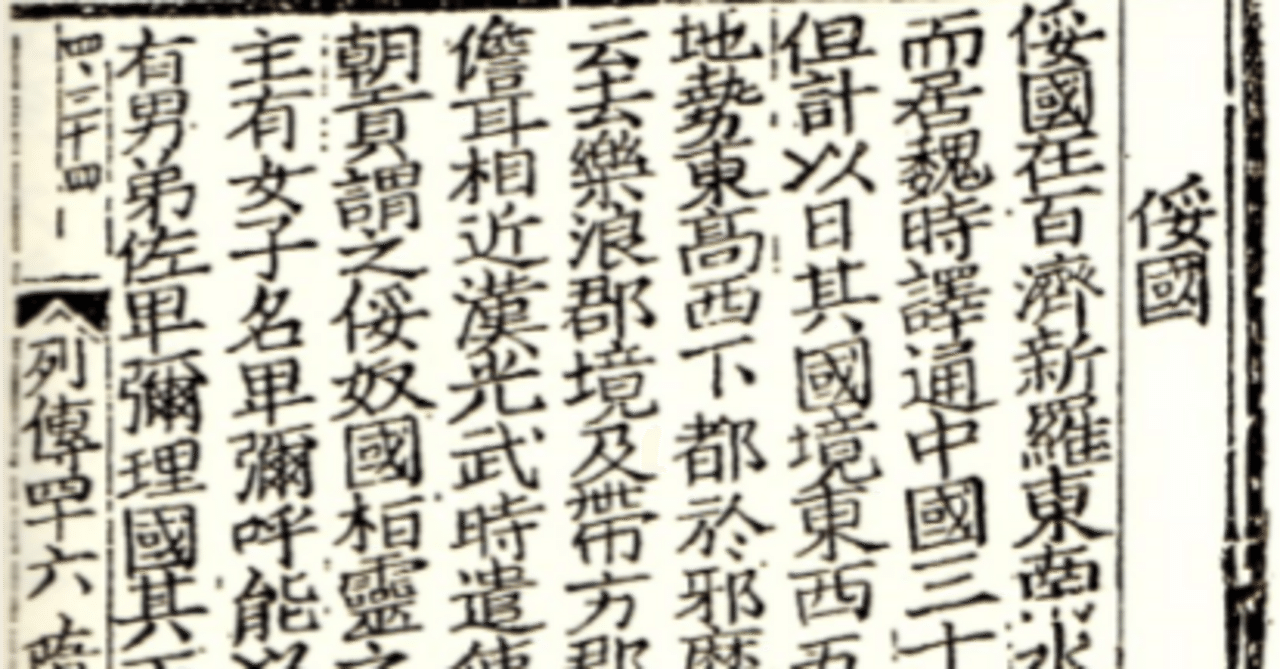 俀國
俀國在百濟新羅東南水
而居魏時譯通中國三十
但計以日其國境東西五
地勢東高西下都於邪靡
云去樂浪郡境及帶方郡
儋耳相近漢光武時遣使
朝貢謂之俀奴國桓靈之
主有女子名卑彌呼能以
有男弟佐卑彌理國其王
四、二十四
列傳四十六 隋